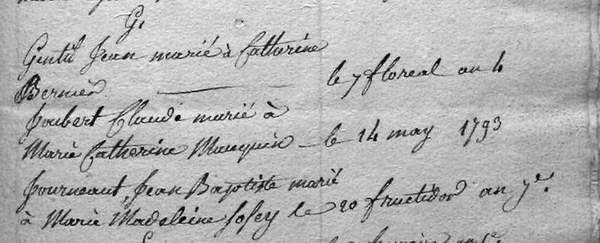 G.
Gentil Jean marié à Catherine
Bernier le 7 floreal an 4
Joubert Claude marié à
Marie Catherine le 14 may 1793
Journeaut Jean Baptiste marié
à Marie Madeleine Josey le 20 fructidord an 7e.